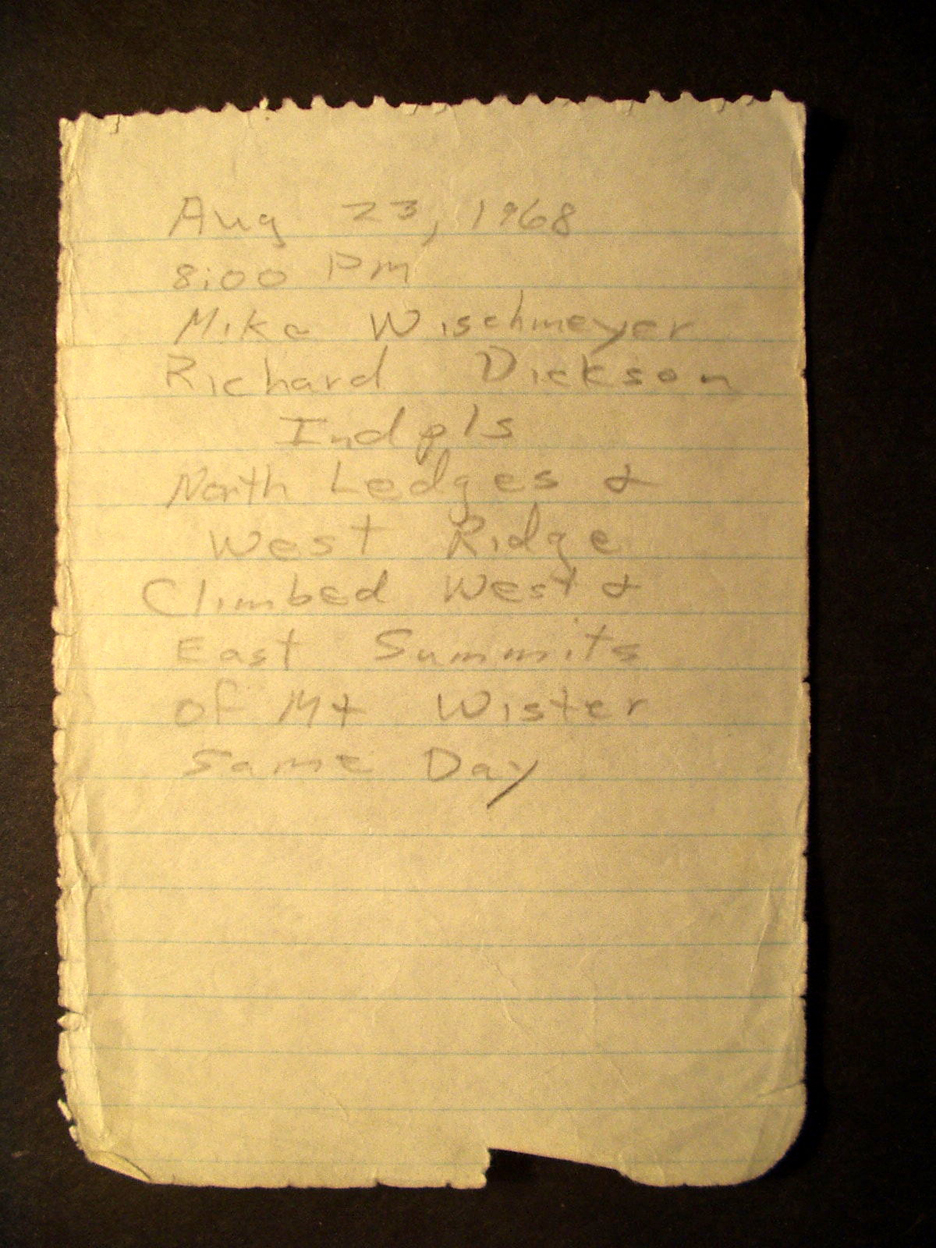 Aug 23, 1968
8:00 Pm
Mike Wischmeyer
Richard Dickson
Indpls
North Ledges &
West Ridge
Climbed West &
East Summits
of Mt Wister
Same Day